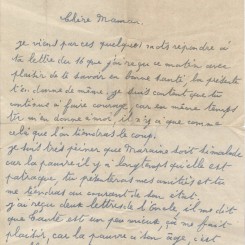 Chère Maman
je viens par ces quelques mots répondre à
ta lettre du 16 que j'ai reçu ce matin avec
plaisir de te savoir en bonne santé la présente
t'en donne de même, je suis content que tu
continues à faire courage, car en même temps
tu m'en donne à moi, il n'y a que comme
cela que l'on tiendras le coup.
je suis très peiner que Marraine soit si malade
car la pauvre il y a longtemps qu'elle est
patraque, tu présenteras mes amitiés et tu
me tiendras au courant de son état.
j'ai reçu deux lettres de l'oncle, il me dit
que tante est un peu mieux, ça me fait
plaisir, car la pauvre a son âge, c'est